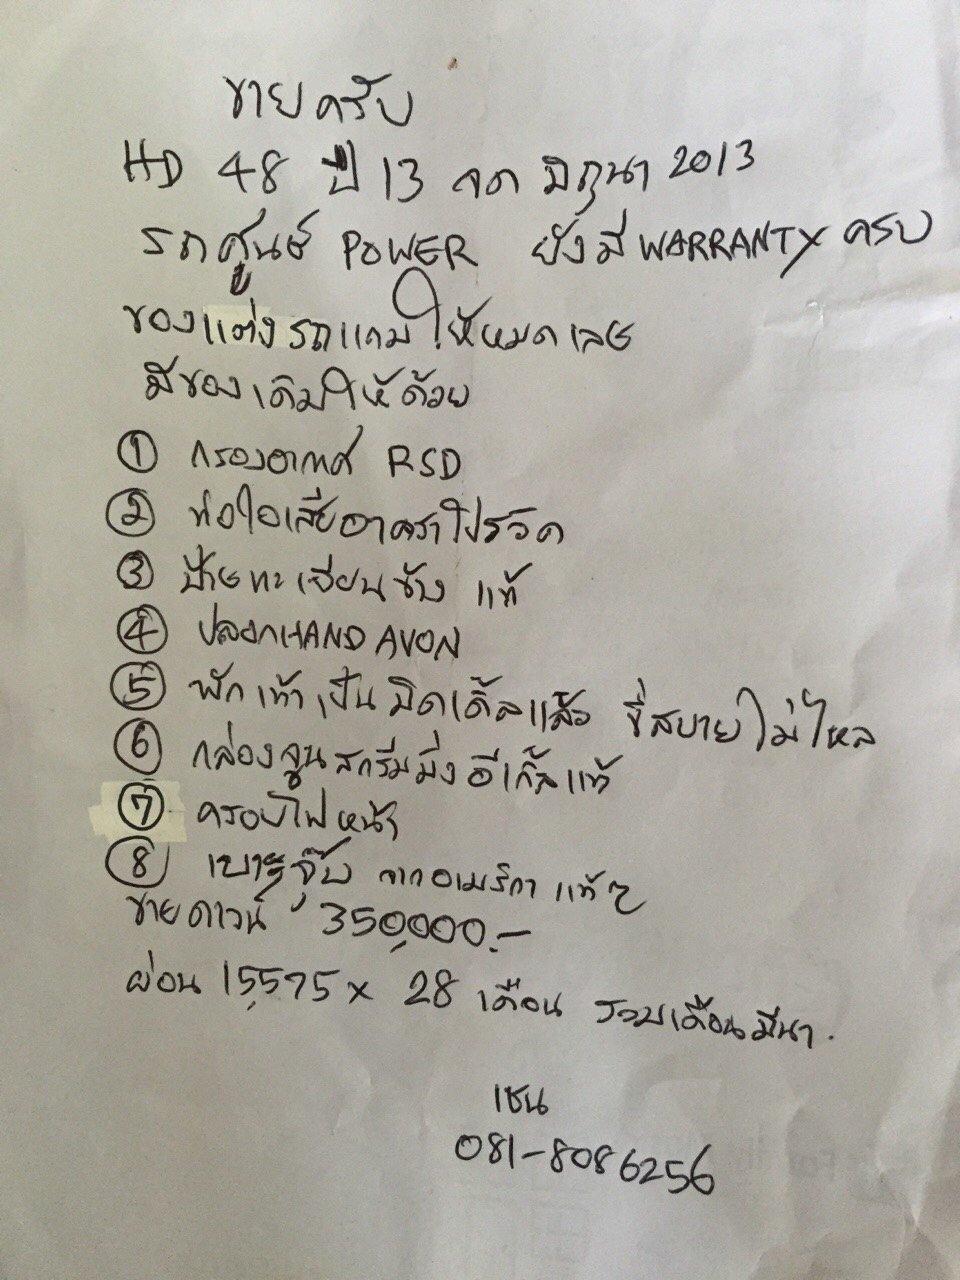 ขายครับ
HD 48 ปี 13 จด มิถุนา 2013
รถศูนย์ POWER ยังมี WARRANTY ครบ
ของแต่งรถแถมให้หมดเลย
มีของเดิมให้ด้วย
① กรองอากาศ RSD
② ท่อไอเสียอาคราโปรวิค
③ ป้ายทะเบียนข้าง แท้
④ ปลอกHAND AVON
⑤ พักเท้าเป็นมิดเดิ้ลแล้ว ขี่สบายไม่ไหล
⑥ กล่องจูนสกรีมมิ่งอีเกิ้ลแท้
⑦ ครอบไฟหน้า
⑧ เบาะจุ๊บ จากอเมริกา แท้ๆ
ขายดาวน์ 350,000.-
ผ่อน 15,575 x 28 เดือน รวมเดือนมีนา.
เชน
081-8086256